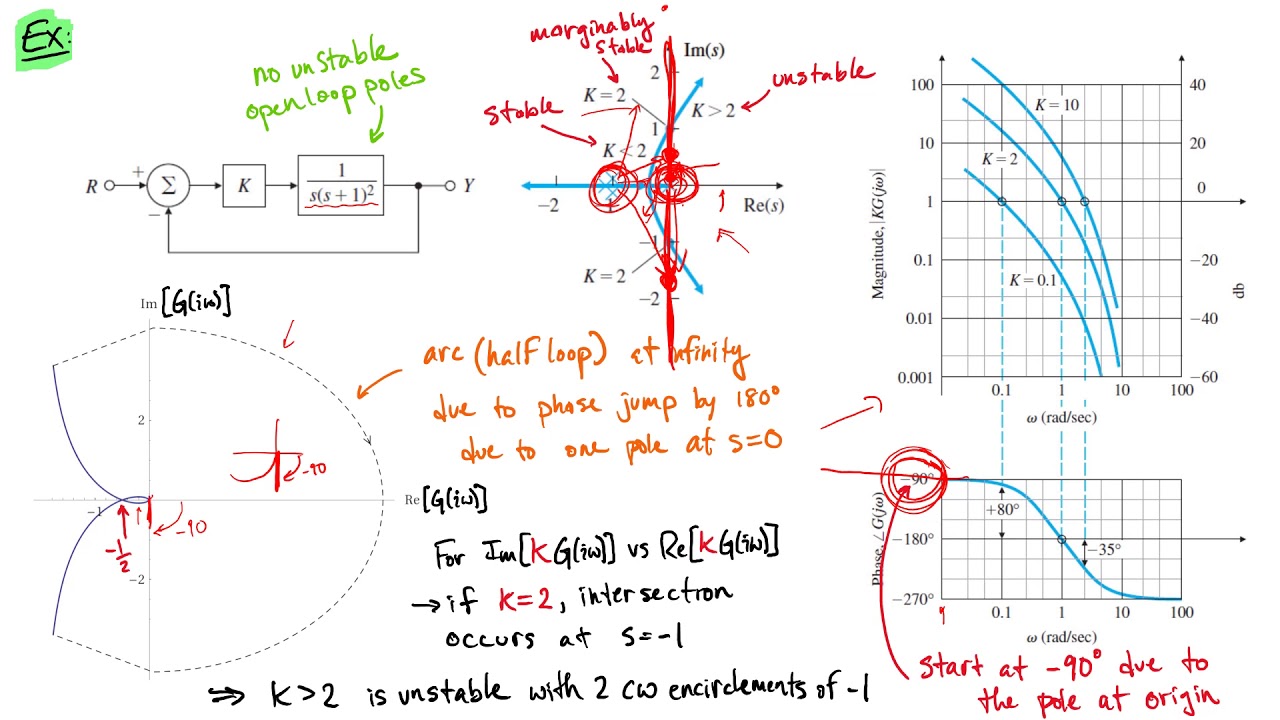 Ex:
no unstable
open loop poles
R
+
Σ
−
K
1
s(s + 1)²
Y
morginably
stable
stable
unstable
Im(s)
2
K = 2
K > 2
1
K < 2
−2
Re(s)
−1
K = 2
−2
100
10
1
0.1
0.01
0.001
Magnitude, |KG(jω)|
K = 10
K = 2
K = 0.1
40
20
0
−20
−40
−60
db
0.1
1
10
100
ω (rad/sec)
Im [G(iω)]
2
-90
-1
-1/2
-90
-2
Re [G(iω)]
arc (half loop) at infinity
due to phase jump by 180°
due to one pole at s=0
For Im[KG(iω)] vs Re[KG(iω)]
→ if K=2, intersection
occurs at s=-1
⇒ K>2 is unstable with 2 CW encirclements of -1
−90°
−180°
−270°
Phase, ∠ G(jω)
+80°
−35°
0.1
1
10
100
ω (rad/sec)
Start at -90° due to
the pole at origin